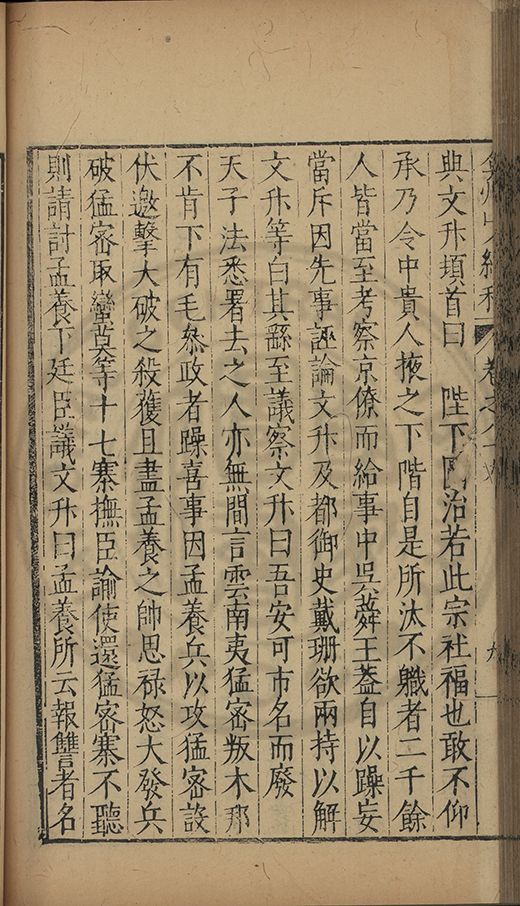 典文升頓首曰　陛下圖治若此宗社福也敢不仰
承乃令中貴人掖之下階自是所汰不職者二千餘
人皆當至考察京僚而給事中吳蕣王蓋自以躁妄
當斥因先事誣論文升及都御史戴珊欲兩持以解
文升等白其繇至議察文升曰吾安可市名而廢
天子法悉署去之人亦無間言雲南夷猛密叛木邦
不肯下有毛叅政者躁喜事因孟養兵以攻猛密設
伏邀擊大破之殺獲且盡孟養之帥思祿怒大發兵
破猛密取蠻莫等十七寨撫臣諭使還猛密寨不聽
則請討孟養下廷臣議文升曰孟養所云報讐者名